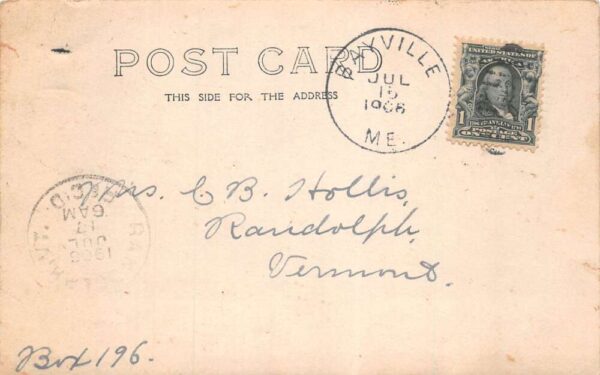 POST CARD
THIS SIDE FOR THE ADDRESS
BAYVILLE
JUL
15
1906
ME.
UNITED STATES OF
AMERICA
1 1
POSTAGE
ONE CENT
Mrs. C B. Hollis,
Randolph,
Vermont.
REC'D.
6 AM
17
JUL
1906
Box 196.